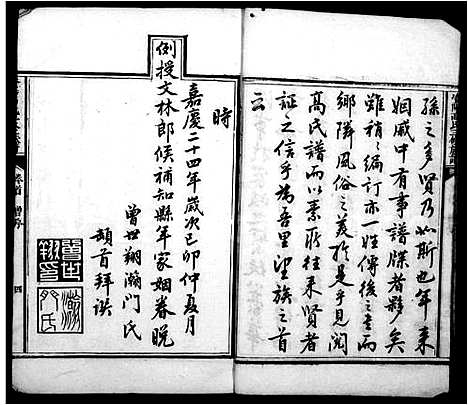 孫之多賢乃如斯也年來
姻戚中有事譜牒者夥矣
雖稍編訂亦一姓傳後之意而
鄉隣風俗之美於是乎見閱
高氏譜而以素所往來賢者
証之信乎為吾里望族之首
云
時
嘉慶二十四年歲次己卯仲夏月
例授文林郎候補知縣年家姻眷晚
曾世翔瀚門氏
頓首拜譔
卷首
四